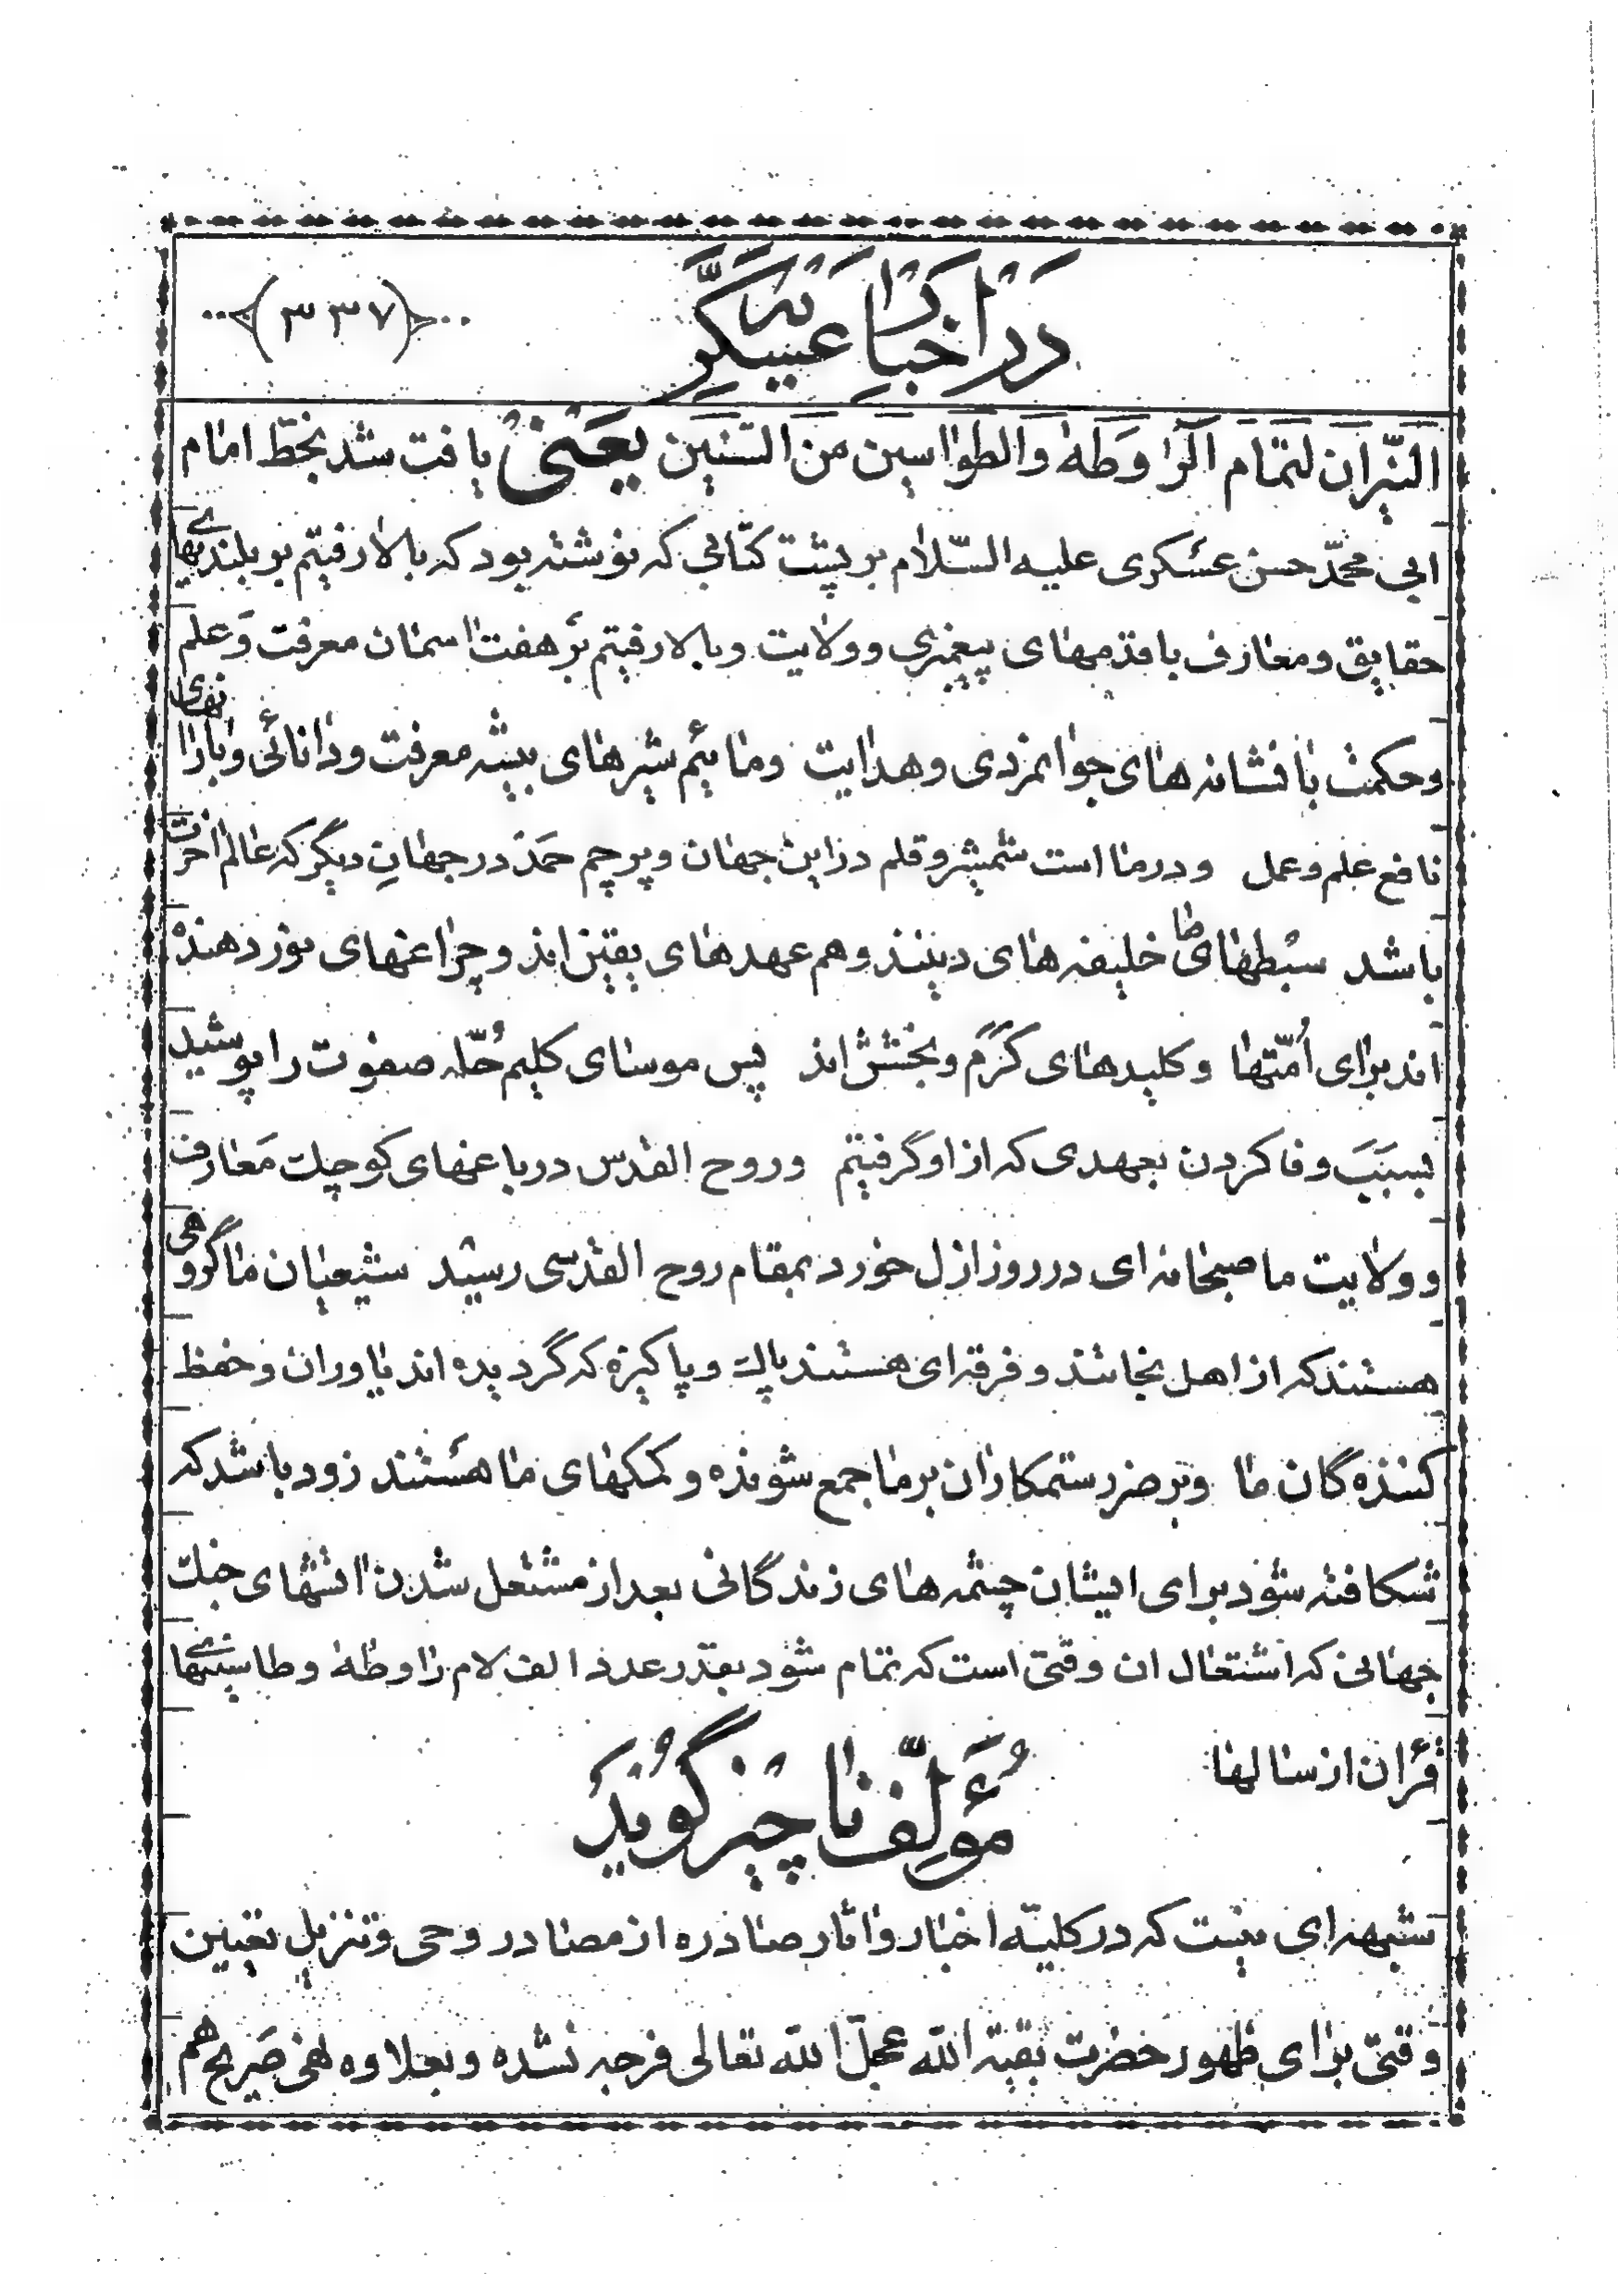 در اخبار عسکریّه
﴿۳۳۷﴾
النّیران لتمام الٓرا وَطٰهٰ وَالطواسین من السّنین یعنی یافت شد بخطّ امام
ابی محمّد حسن عسکری علیه السّلام بر پشت کتابی که نوشته بود که بالا رفتیم بر بلندیهای
حقایق و معارف با قدمهای پیغمبری و ولایت و بالا رفتیم بر هفت اسمان معرفت و علم
و حکمت با نشانه های جوانمردی و هدایت و مائیم شیرهای بیشه معرفت و دانائی و بارانهای
نافع علم و عمل و در ما است شمشیر و قلم در این جهان و پرچم حمد در جهانِ دیگر که عالم اخرت
باشد سبطهای ما خلیفه های دینند و هم عهدهای یقین اند و چراغهای نور دهنده
اند برای اُمّتها و کلیدهای کَرَم و بخشش اند پس موسای کلیم حُلّه صفوت را پوشید
بسبَبَ وفا کردن بعهدی که از او گرفتیم و روح القدس در باغهای کوچک مَعارف
و ولایت ما صبحانه ای در روز ازل خورد بمقام روح القدسی رسید شیعیان ما گروهی
هستند که از اهل نجاتند و فرقه ای هستند پاک و پاکیزه که گردیده اند یاوران و حفظ
کننده گان ما و بر ضرر ستمکاران بر ما جمع شونده و کمکهای ما هستند زود باشد که
شکافته شود برای ایشان چشمه های زندگانی بعد از مشتعل شدن اتشهای جنک
جهانی که اشتعال ان وقتی است که تمام شود بقدر عدد الف لام را و طٰهٰ و طاسینهای
قرٔان از سالها
مؤلّف ناچیز گوید
شبهه ای نیست که در کلیّه اخبار و اثار صادره از مصادر وحی و تنزیل تعیین
وقتی برای ظهور حضرت بقیة اللّه عجل اللّه تعالی فرجه نشده و بعلاوه نهی صریح هم